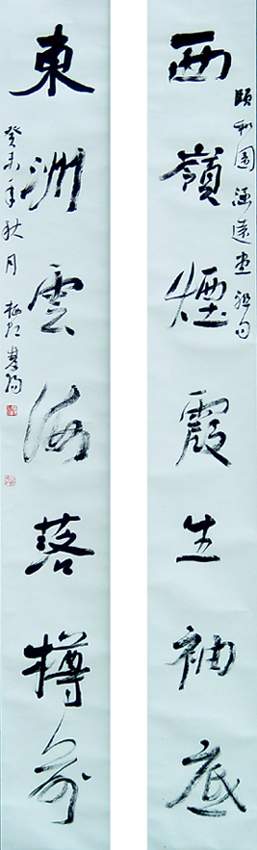 頤和園涵遠堂聯句
西嶺煙霞生袖底
東洲雲海落樽前
癸未年秋月